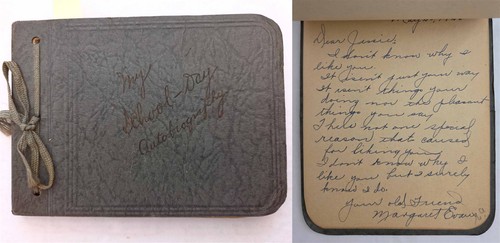 My
School-Day
Autobiography
Dear Jessie,
I don't know why I
like you
It isn't just your way
It isn't things your
doing nor the pleasant
things you say
There's not one special
reason that caused
for liking you
I don't know why I
like you but I surely
know I do.
Your old Friend
Margaret